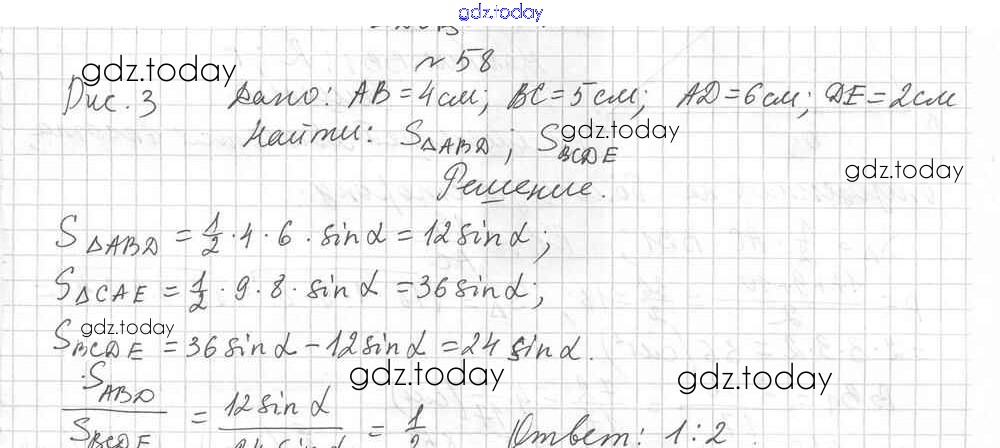 gdz.today
№ 58
gdz.today
Рис. 3 Дано: AB = 4 см; BC = 5 см; AD = 6 см; DE = 2 см
Найти: S△ABD; SBCDE
gdz.today
gdz.today
Решение.
S△ABD = 1/2 · 4 · 6 · sin α = 12 sin α;
S△CAE = 1/2 · 9 · 8 · sin α = 36 sin α;
gdz.today
SBCDE = 36 sin α − 12 sin α = 24 sin α.
gdz.today
gdz.today
SABD/SBCDE = 12 sin α/24 sin α = 1/2 Ответ: 1:2.